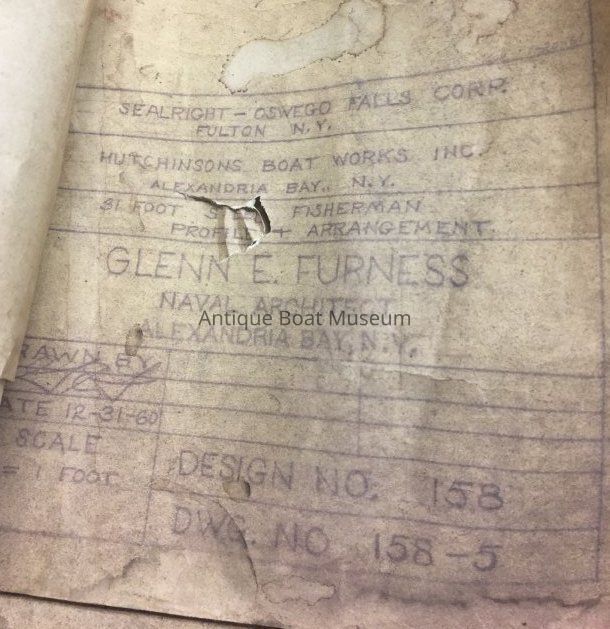 SEALRIGHT - OSWEGO FALLS CORP.
FULTON N.Y.
HUTCHINSONS BOAT WORKS INC.
ALEXANDRIA BAY., N.Y.
31 FOOT FISHERMAN
PROFILE + ARRANGEMENT
GLENN E. FURNESS
NAVAL ARCHITECT
Antique Boat Museum
ALEXANDRIA BAY, N.Y.
RAWN BY
ATE 12-31-60
SCALE
= 1 FOOT
DESIGN NO. 158
DWG. NO 158-5